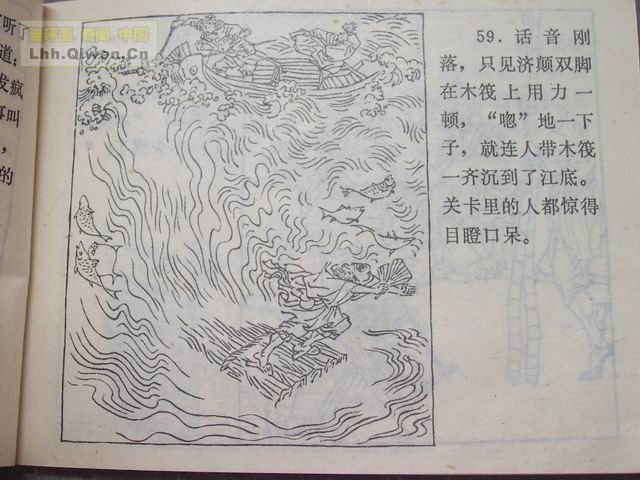 连环画.易网.中国
Lhh.Qiwon.Cn
了听了
道:
发疯
事叫
,
的
59.话音刚
落,只见济颠双脚
在木筏上用力一
顿,“唿”地一下
子,就连人带木筏
一齐沉到了江底。
关卡里的人都惊得
目瞪口呆。